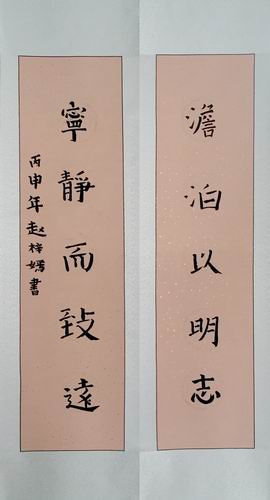 澹泊以明志
寧靜而致遠
丙申年赵梓嫣書